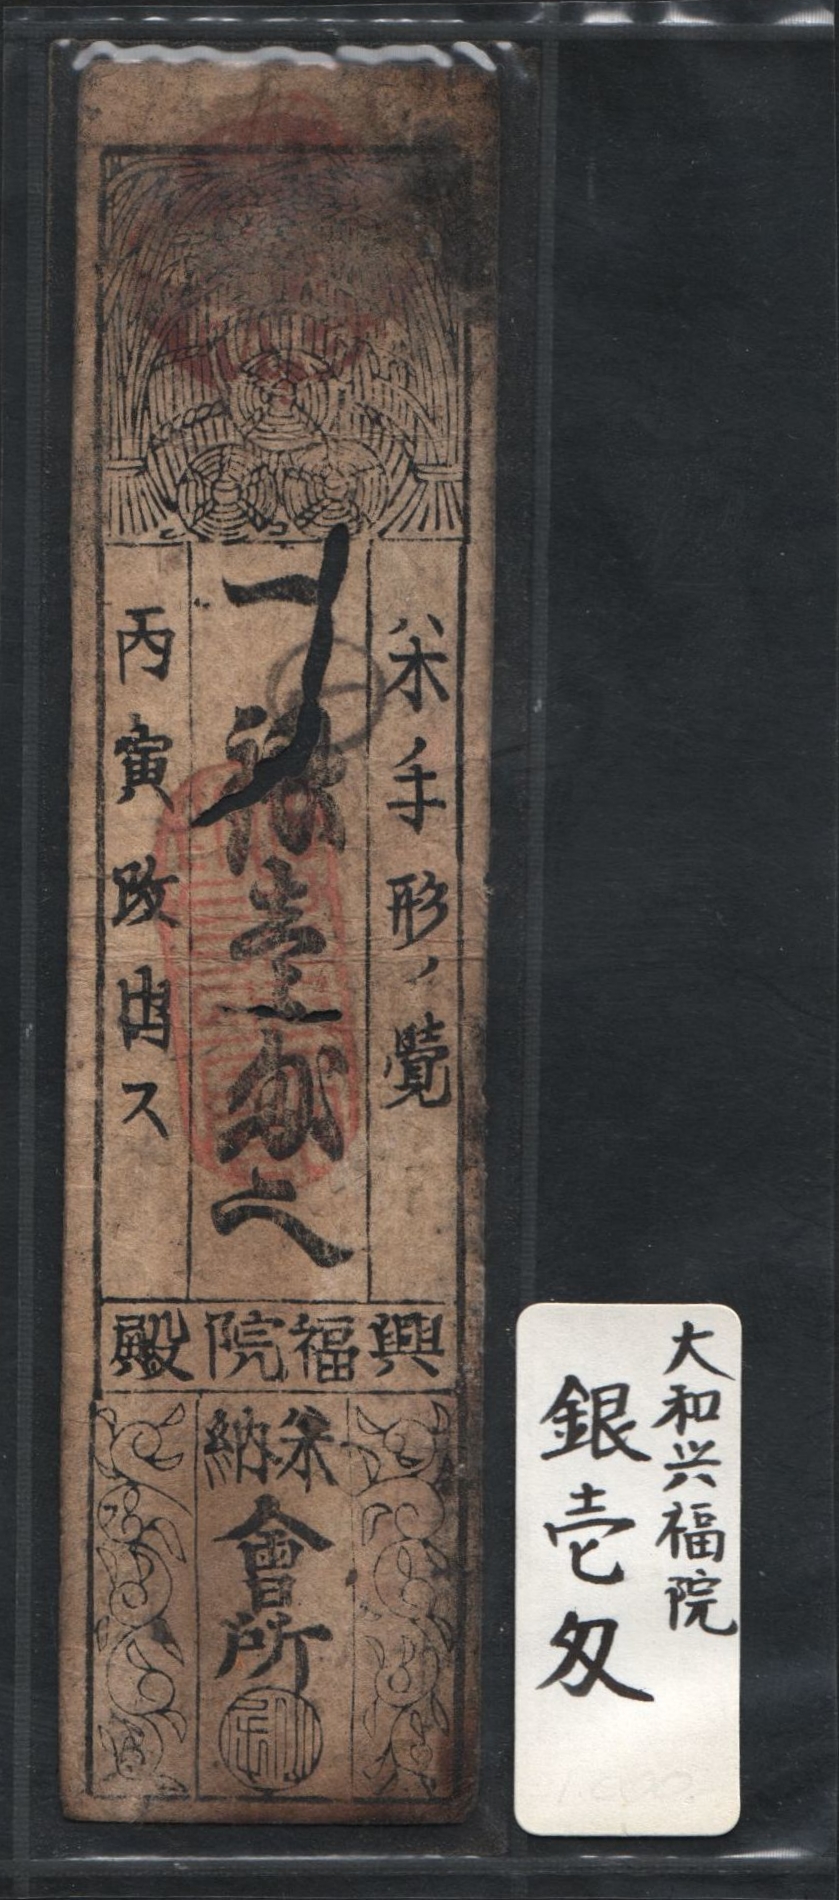 米手形ノ覚
一 銀壱匁也
丙寅改出ス
興福院殿
米納
會所
大和兴福院
銀壱匁
1.000.